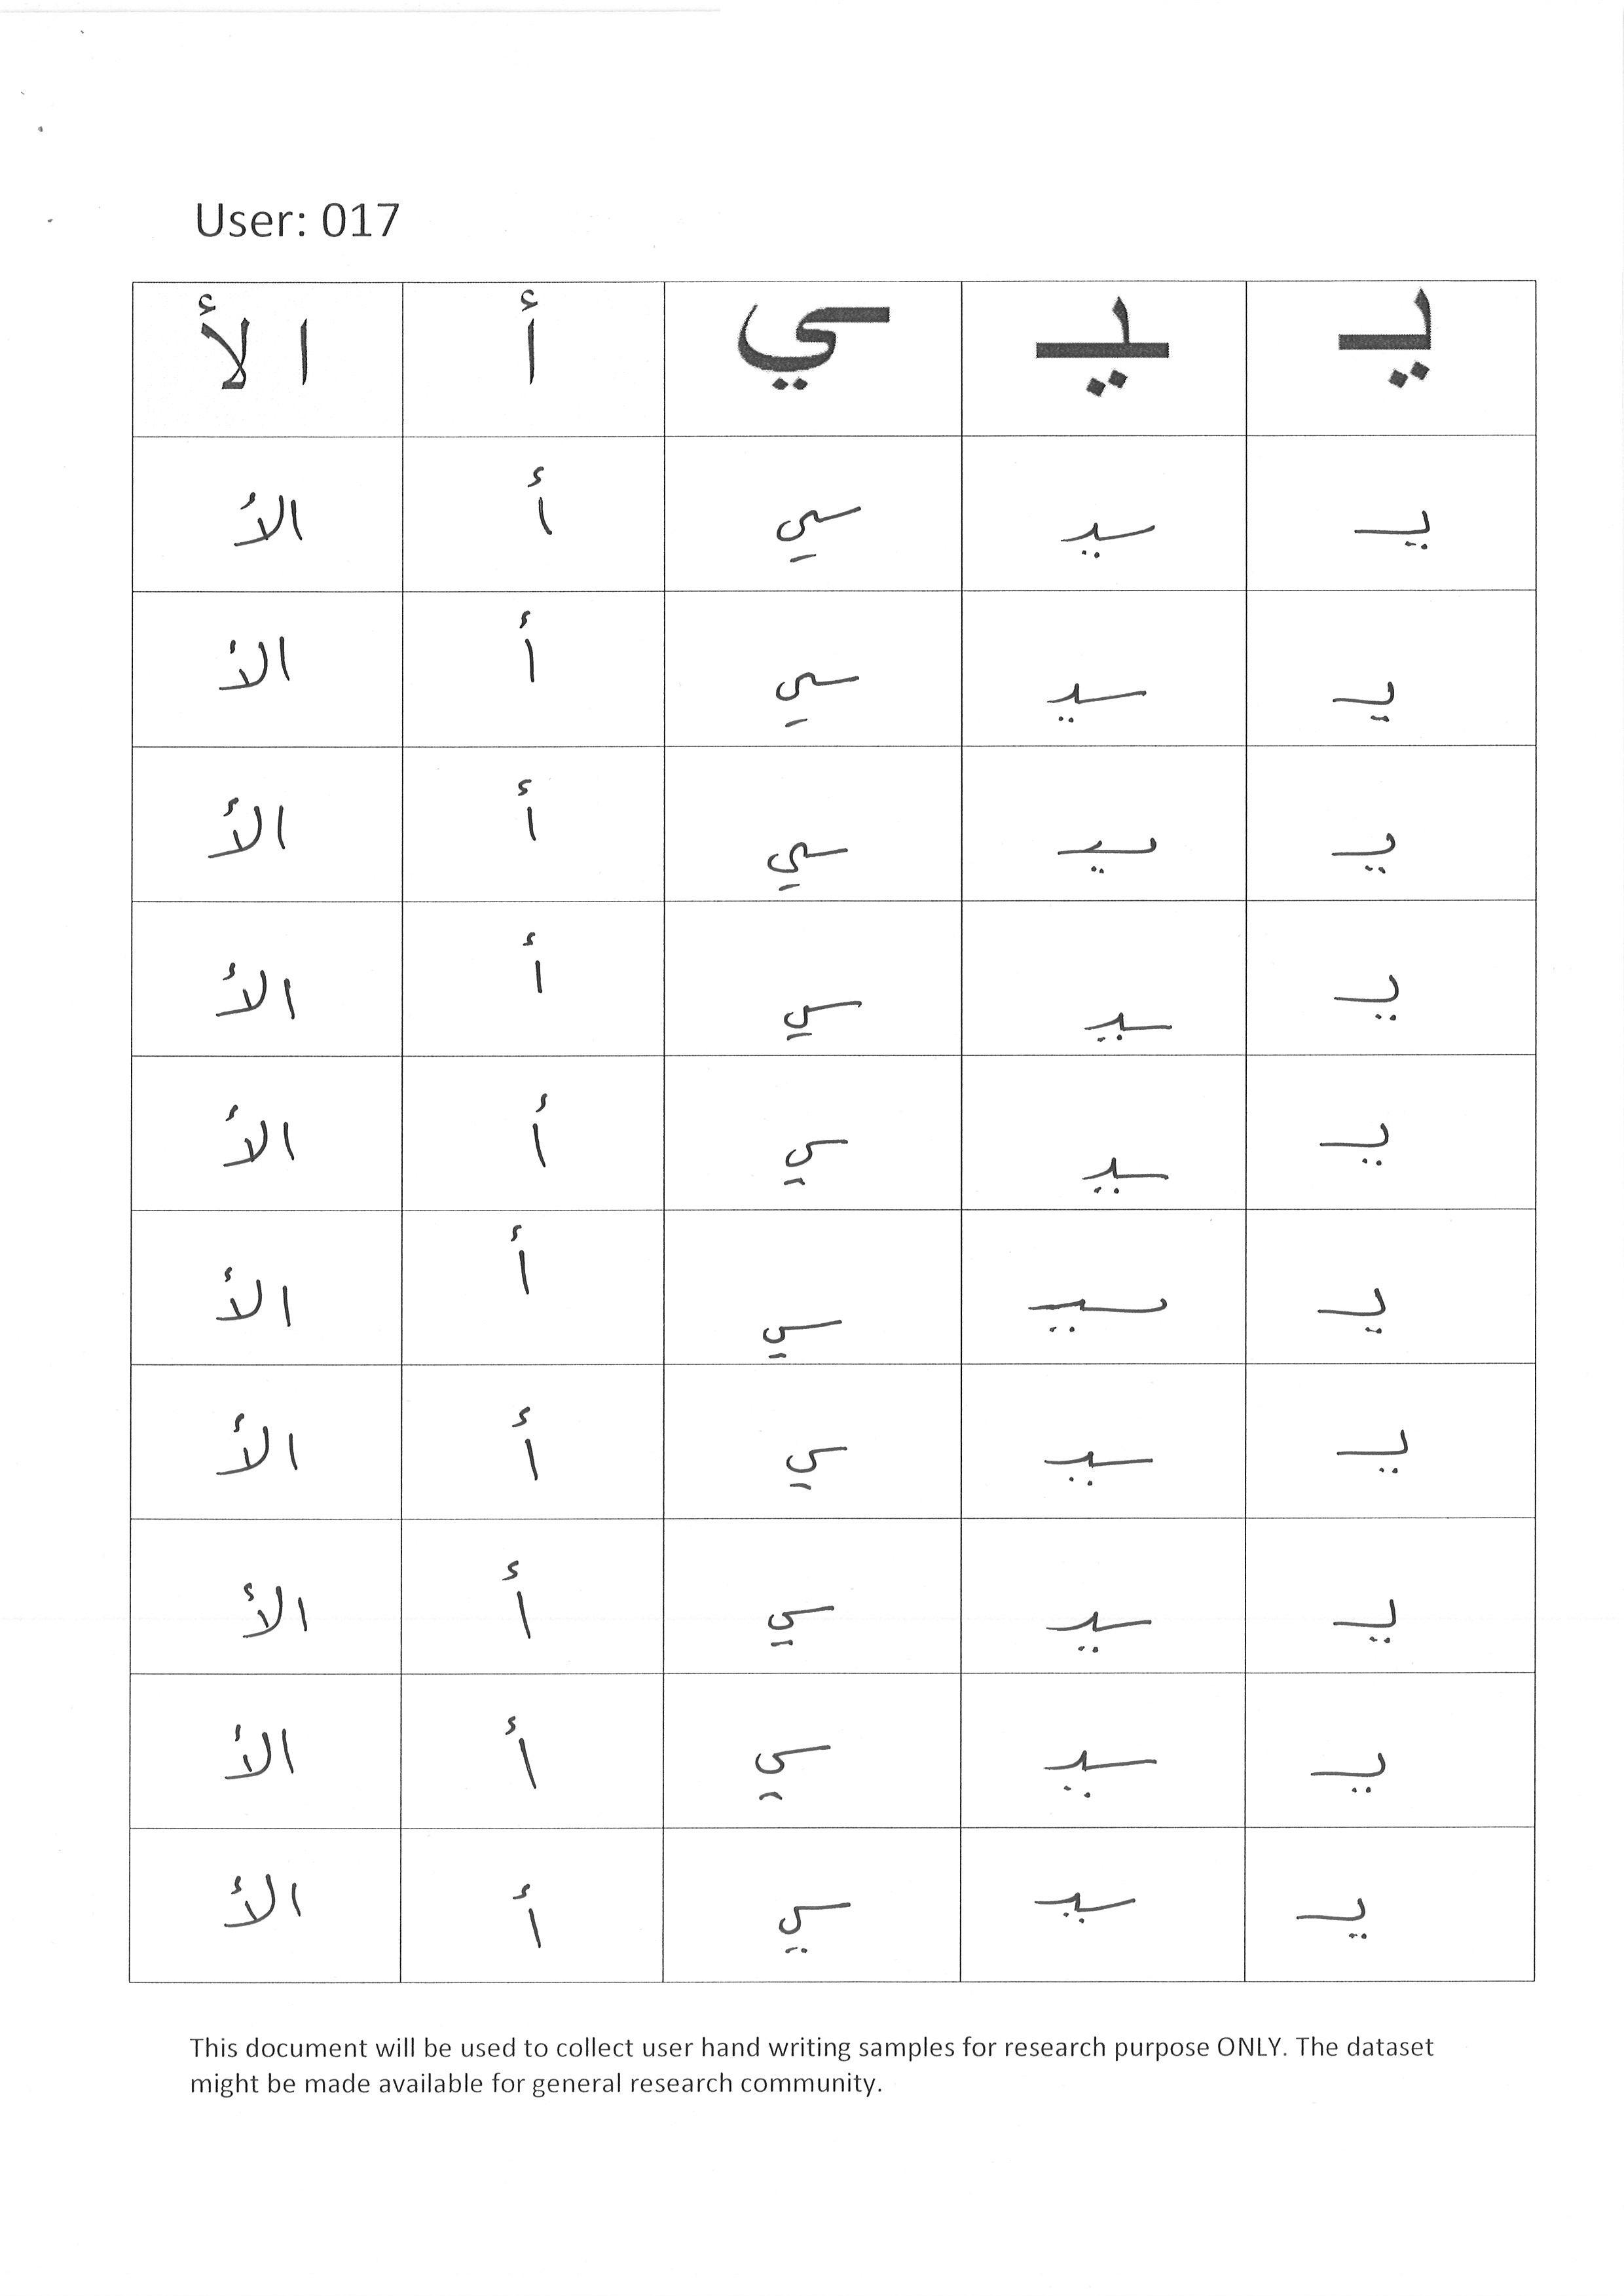 User: 017
يـ ـيـ ـي أ ا لأ
يـ ـيـ ـي أ الأ
يـ ـيـ ـي أ الأ
يـ ـيـ ـي أ الأ
يـ ـيـ ـي أ الأ
يـ ـيـ ـي أ الأ
يـ ـيـ ـي أ الأ
يـ ـيـ ـي أ الأ
يـ ـيـ ـي أ الأ
يـ ـيـ ـي أ الأ
يـ ـيـ ـي أ الأ
This document will be used to collect user hand writing samples for research purpose ONLY. The dataset
might be made available for general research community.